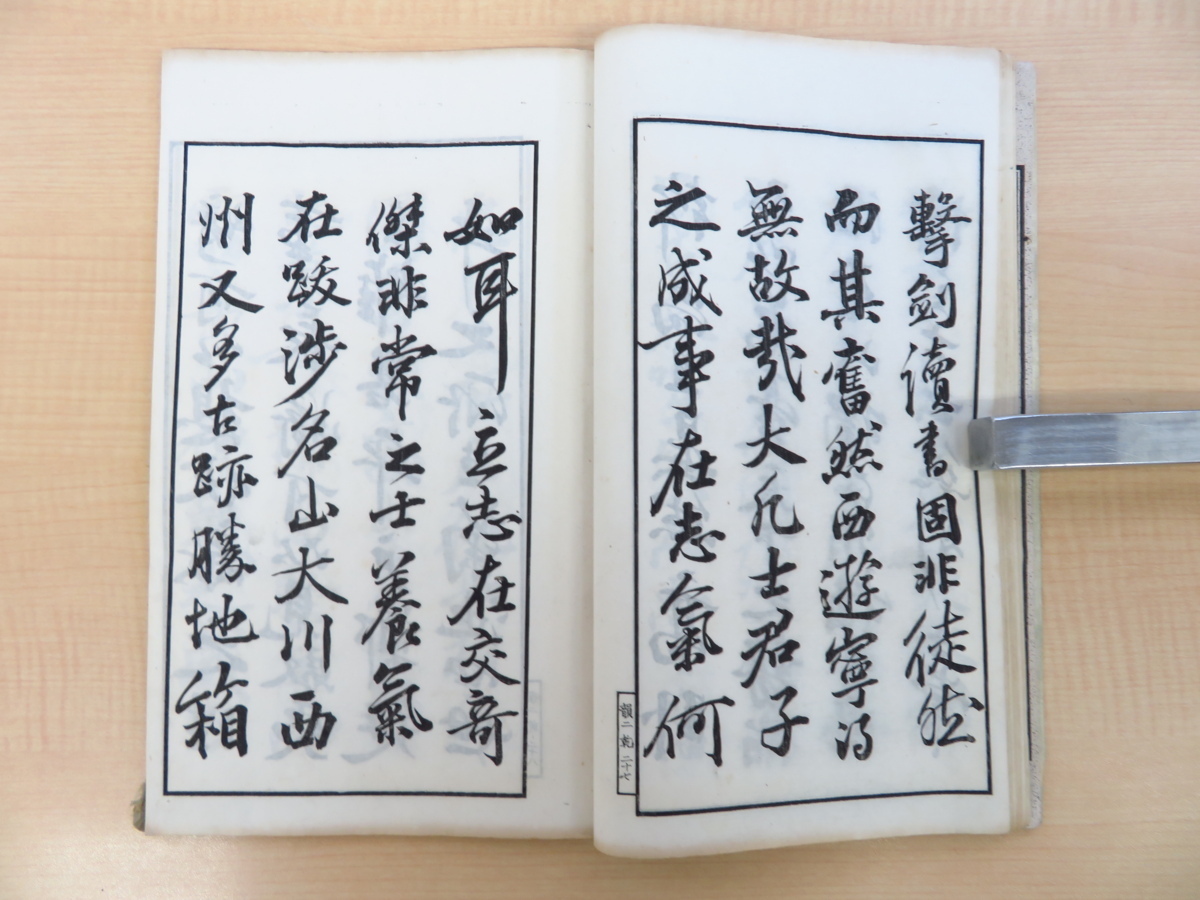 擊劍讀書固非徒然
而其奮然西遊寧得
無故哉大凡士君子
之成事在志氣何
如耳立志在交奇
傑非常之士養氣
在跋涉名山大川西
州又多古跡勝地箱
韻二 乾 二十七